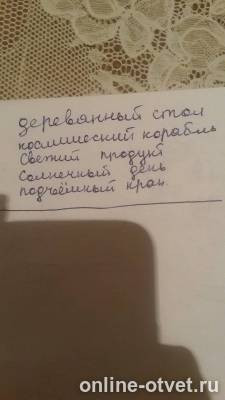 деревянный стол
космический корабль
Свежий продукт
Солнечный день
подъёмный кран
online-otvet.ru